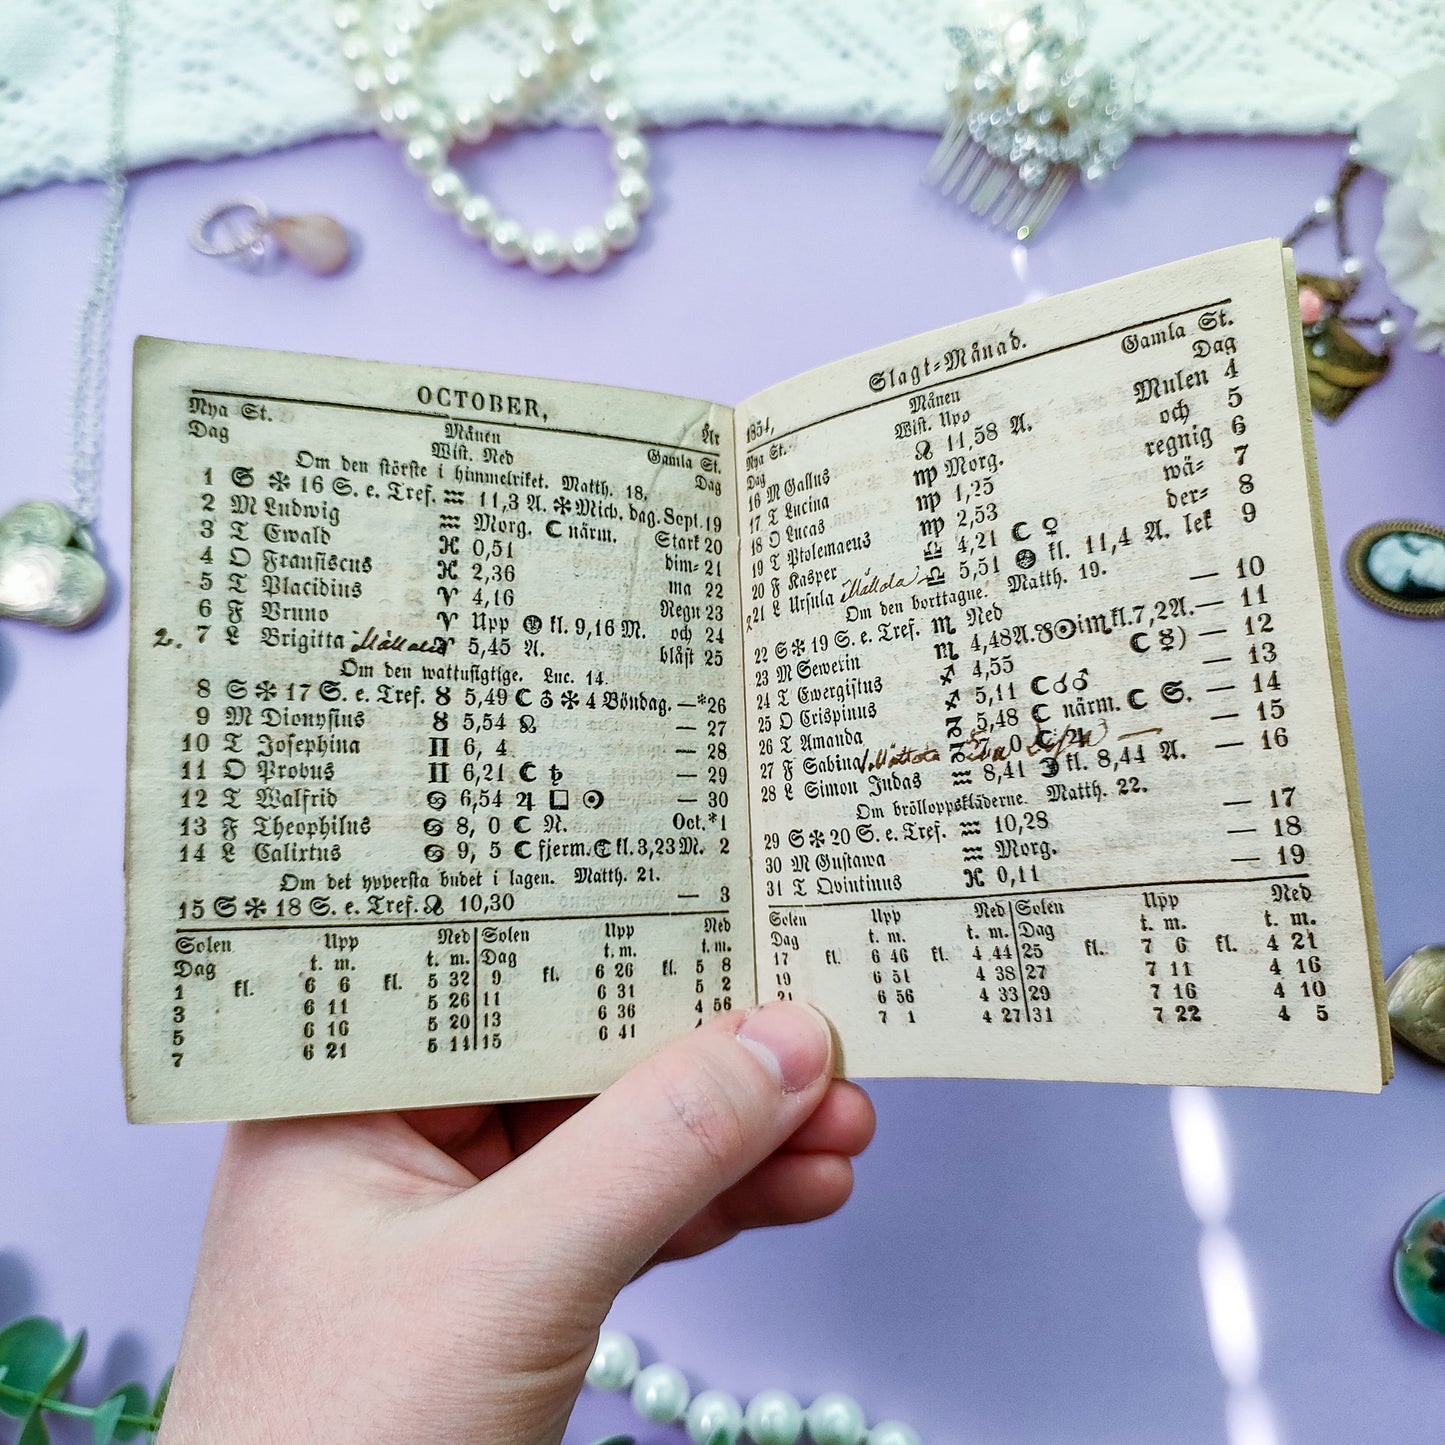 OCTOBER,
Nya St. Månen År
Dag Wist. Ned Gamla St.
Om den störste i himmelriket. Matth. 18. Dag
1 S ✻ 16 S. e. Tref. ♒ 11,3 A. ✻ Mich. dag. Sept. 19
2 M Ludwig ♒ Morg. ☾ närm. Start 20
3 T Ewald ♓ 0,51 dim= 21
4 O Fransiscus ♓ 2,36 ma 22
5 T Placidius ♈ 4,16 Regn 23
6 F Bruno ♈ Upp kl. 9,16 M. och 24
2. 7 L Brigitta ♉ 5,45 A. blåst 25
Om den wattusigtige. Luc. 14.
8 S ✻ 17 S. e. Tref. ♉ 5,49 ☾ ♁ ✻ 4 Böndag. —*26
9 M Dionysius ♉ 5,54 ☊ — 27
10 T Josephina ♊ 6, 4 — 28
11 O Probus ♊ 6,21 ☾ ♄ — 29
12 T Walfrid ♋ 6,54 ♃ □ ☉ — 30
13 F Theophilus ♋ 8, 0 ☾ N. Oct.*1
14 L Calixtus ♋ 9, 5 ☾ fjerm. ☾ kl. 3,23 M. 2
Om det yppersta budet i lagen. Matth. 21.
15 S ✻ 18 S. e. Tref. ♌ 10,30 — 3
Solen Upp Ned Solen Upp Ned
Dag t. m. t. m. Dag t. m. t. m.
1 kl. 6 6 kl. 5 32 9 kl. 6 26 kl. 5 8
3 6 11 5 26 11 6 31 5 2
5 6 16 5 20 13 6 36 4 56
7 6 21 5 14 15 6 41 4
1854, Slagt=Månad.
Nya St. Månen Gamla St.
Dag Wist. Upo Dag
16 M Gallus ♌ 11,58 A. Mulen 4
17 T Lucina ♍ Morg. och 5
18 O Lucas ♍ 1,25 regnig 6
19 T Ptolemaeus ♍ 2,53 wä= 7
20 F Kasper ♎ 4,21 ☾ ♀ der= 8
21 L Ursula ♎ 5,51 kl. 11,4 A. lek 9
Om den borttagne. Matth. 19.
22 S ✻ 19 S. e. Tref. ♏ Ned — 10
23 M Sewerin ♏ 4,48 A. ☿ ☉ im kl. 7,2 A. — 11
24 T Ewergistus ♐ 4,55 ☾ ☿) — 12
25 O Crispinus ♐ 5,11 ☾ ♂ — 13
26 T Amanda ♑ 5,48 ☾ närm. ☾ S. — 14
27 F Sabina ♑ 7, 0 ☾ ♃ — 15
28 L Simon Judas ♒ 8,41 ☽ kl. 8,44 A. — 16
Om bröllopskläderne. Matth. 22.
29 S ✻ 20 S. e. Tref. ♒ 10,28 — 17
30 M Gustawa ♒ Morg. — 18
31 T Qvintinus ♓ 0,11 — 19
Solen Upp Ned Solen Upp Ned
Dag t. m. t. m. Dag t. m. t. m.
17 kl. 6 46 kl. 4 44 25 kl. 7 6 kl. 4 21
19 6 51 4 38 27 7 11 4 16
21 6 56 4 33 29 7 16 4 10
7 1 4 27 31 7 22 4 5